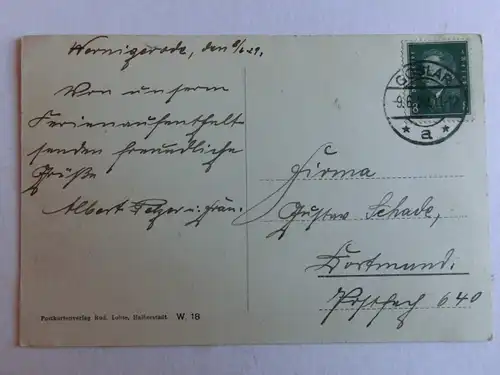 Wernigerode, den 8/6 29.
Von unserm
Ferienaufenthalt
senden freundliche
Grüße
Albert u. Frau.
GOSLAR
a
Firma
Gustav Schade,
Dortmund.
Postfach 640
Postkartenverlag Rud. Halberstadt W. 18